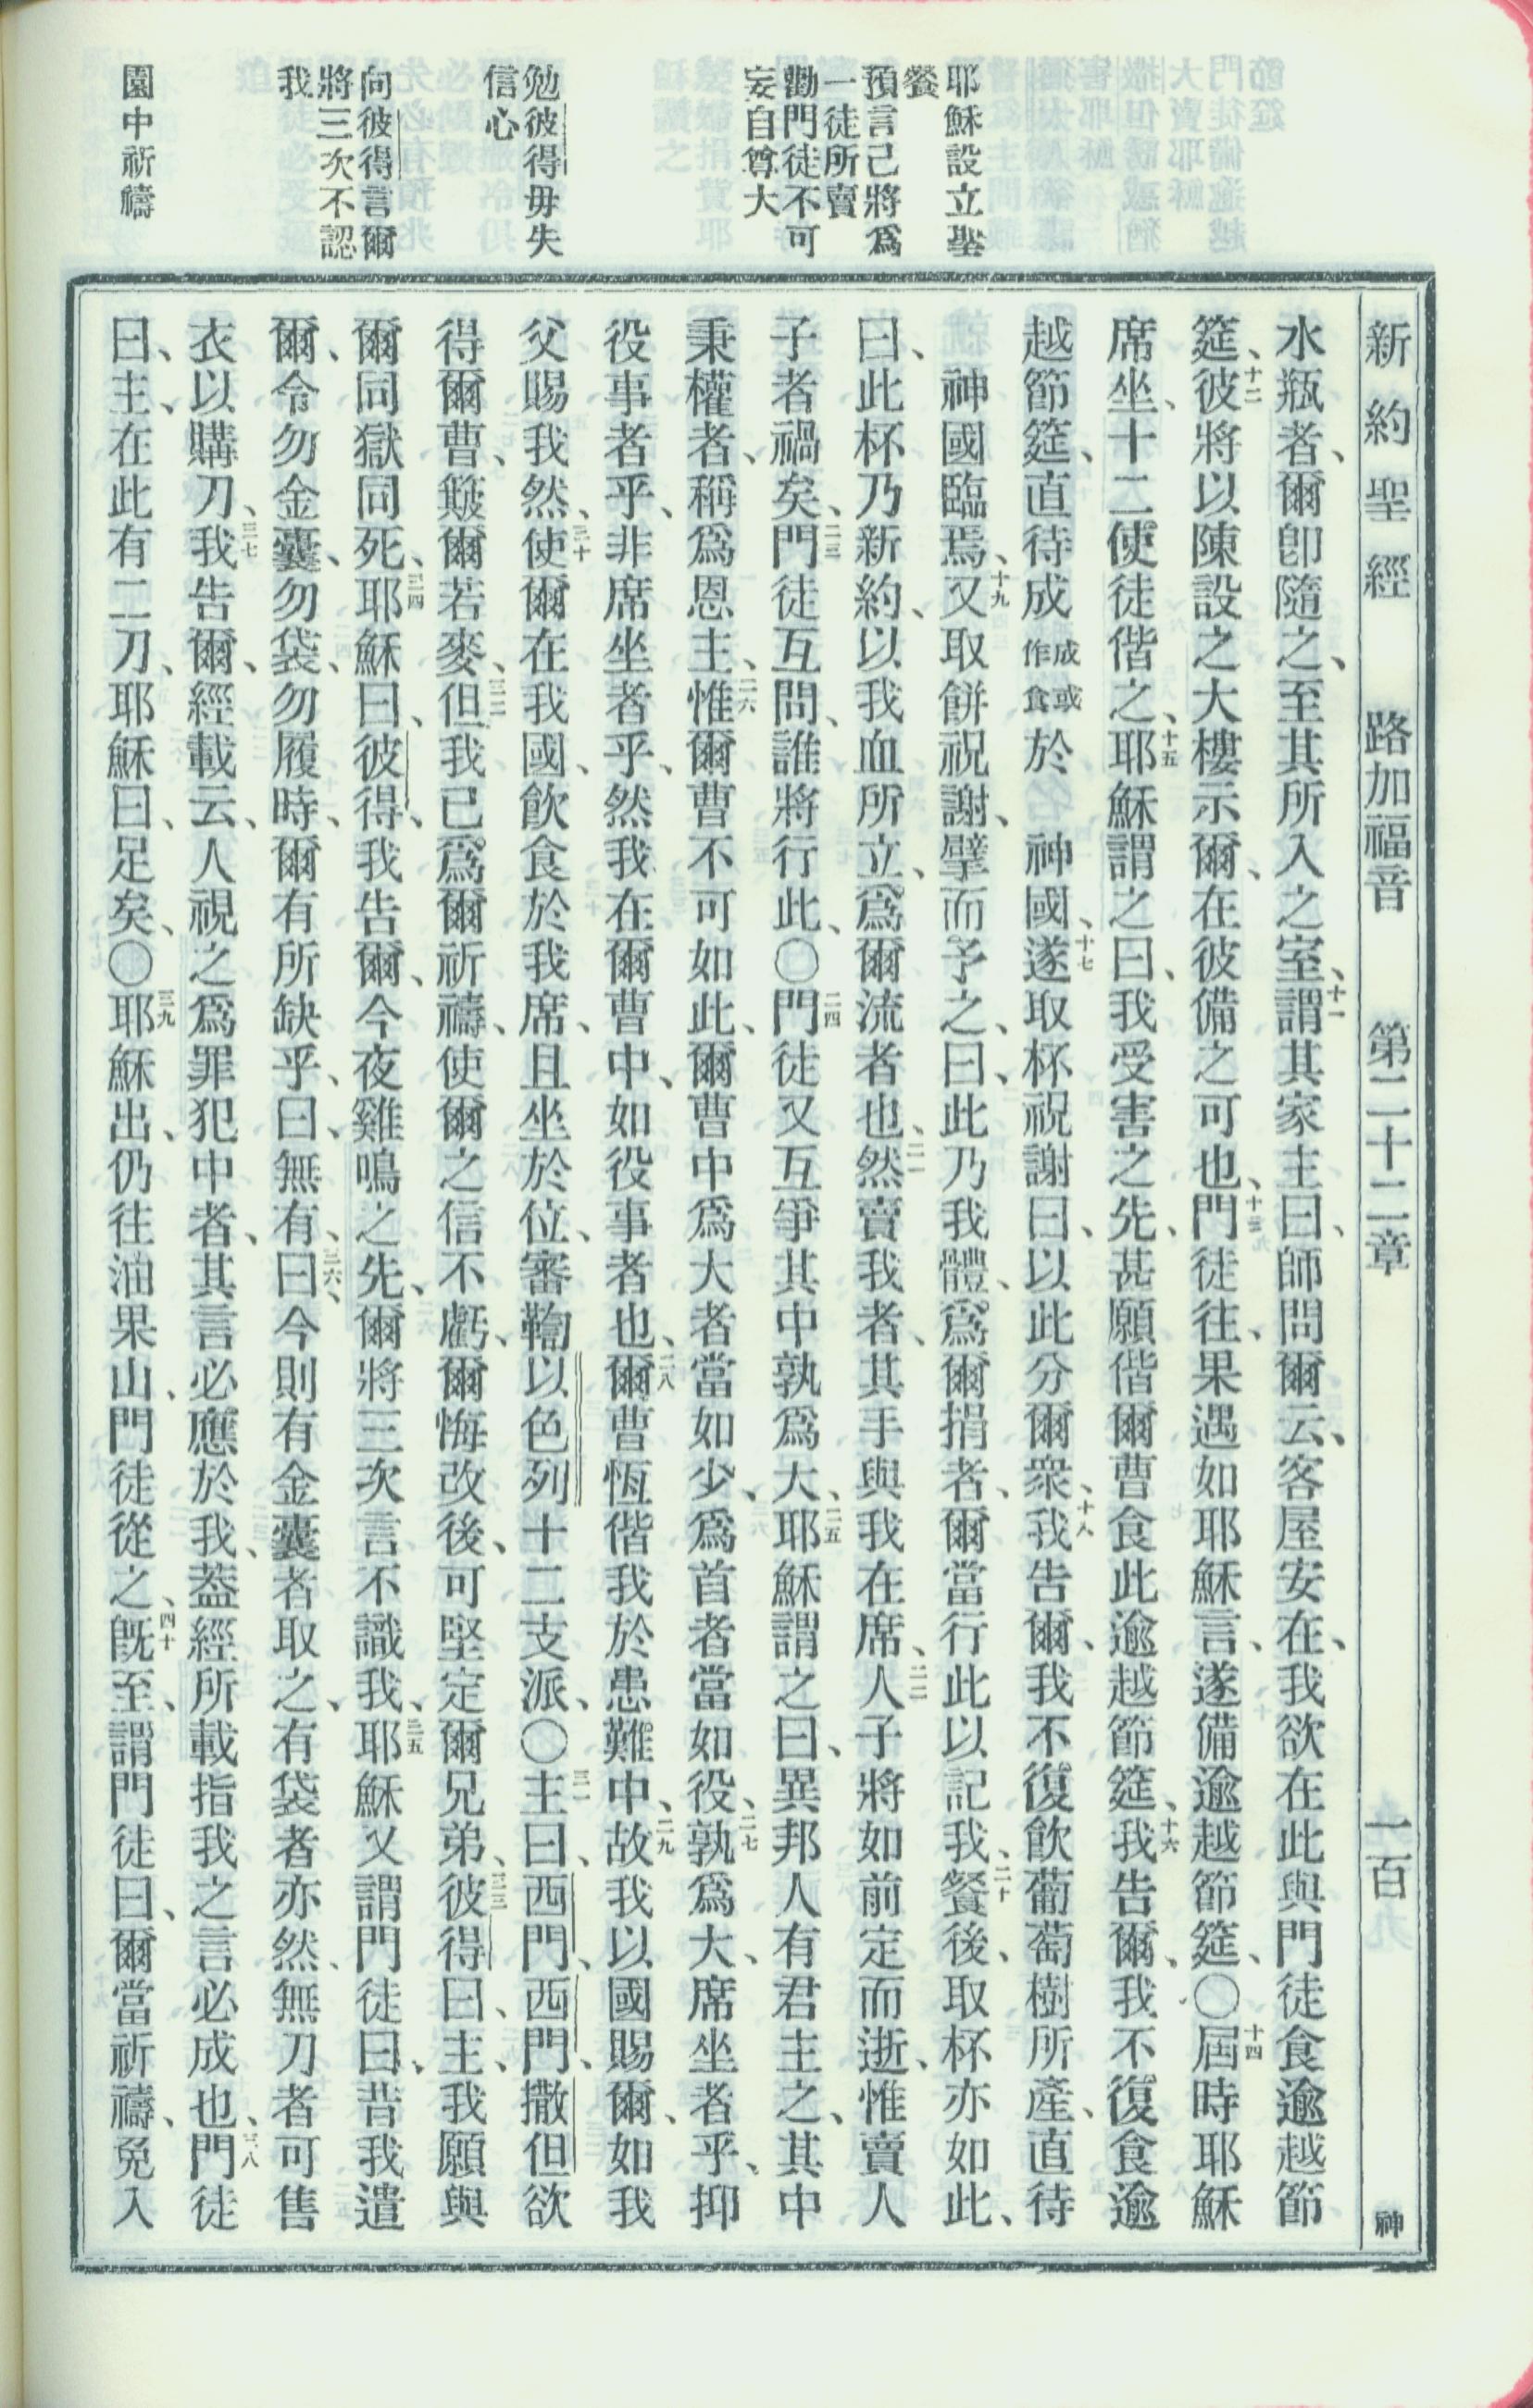 新約聖經 路加福音 第二十二章 一百 神
耶穌設立聖
餐
預言己將爲
一徒所賣
勸門徒不可
妄自尊大
勉彼得毋失
信心
向彼得言爾
將三次不認
我
園中祈禱
水瓶者、爾卽隨之、至其所入之室、十一謂其家主曰、師問爾云、客屋安在、我欲在此與門徒食逾越節
筵、十二彼將以陳設之大樓示爾、在彼備之可也、十三門徒往、果遇如耶穌言、遂備逾越節筵、〇十四屆時耶穌
席坐、十二使徒偕之、十五耶穌謂之曰、我受害之先、甚願偕爾曹食此逾越節筵、十六我告爾、我不復食逾
越節筵、直待成成或作食於 神國、十七遂取杯祝謝曰、以此分爾衆、十八我告爾、我不復飲葡萄樹所產、直待
神國臨焉、十九又取餅祝謝、擘而予之、曰、此乃我體、爲爾捐者、爾當行此以記我、二十餐後、取杯亦如此、
曰、此杯乃新約、以我血所立、爲爾流者也、二一然賣我者、其手與我在席、二二人子將如前定而逝、惟賣人
子者禍矣、二三門徒互問、誰將行此、〇二四門徒又互爭其中孰爲大、二五耶穌謂之曰、異邦人有君主之、其中
秉權者、稱爲恩主、二六惟爾曹不可如此、爾曹中爲大者當如少、爲首者當如役、二七孰爲大、席坐者乎、抑
役事者乎、非席坐者乎、然我在爾曹中、如役事者也、二八爾曹恆偕我於患難中、二九故我以國賜爾、如我
父賜我然、三十使爾在我國、飲食於我席、且坐於位、審鞫以色列十二支派、〇三一主曰、西門、西門、撒但欲
得爾曹、簸爾若麥、三二但我已爲爾祈禱、使爾之信不虧、爾悔改後、可堅定爾兄弟、三三彼得曰、主、我願與
爾同獄同死、三四耶穌曰、彼得、我告爾、今夜雞鳴之先、爾將三次言不識我、三五耶穌又謂門徒曰、昔我遣
爾、令勿金囊、勿袋、勿履時、爾有所缺乎、曰、無有、三六曰、今則有金囊者取之、有袋者亦然、無刀者可售
衣以購刀、三七我告爾、經載云、人視之爲罪犯中者、其言必應於我、蓋經所載指我之言必成也、三八門徒
曰、主、在此有二刀、耶穌曰、足矣、〇三九耶穌出、仍往油果山、門徒從之、四十旣至、謂門徒曰、爾當祈禱、免入